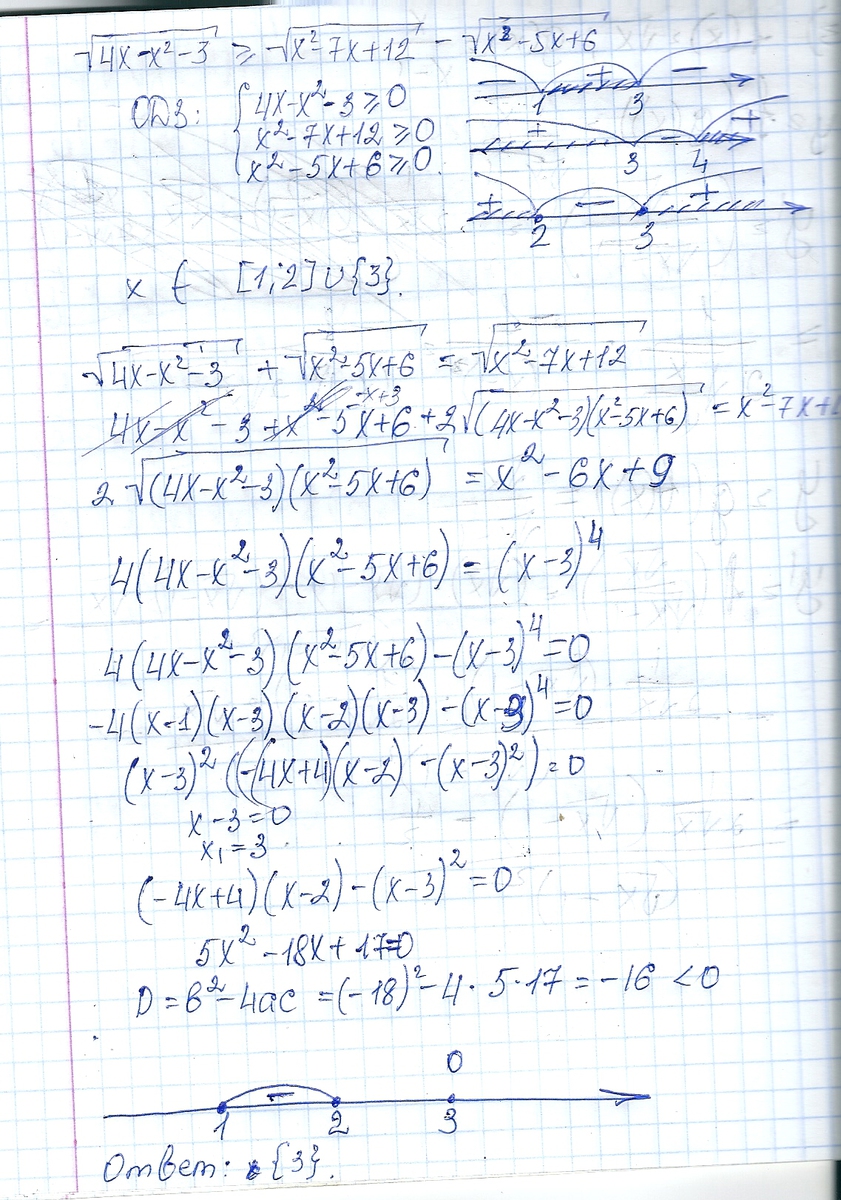 √(4x-x²-3) ≥ √(x²-7x+12) - √(x²-5x+6)
- + -
1 3
ОДЗ: { 4x-x²-3 ≥ 0
x²-7x+12 ≥ 0
x²-5x+6 ≥ 0.
+ - +
3 4
+ - +
2 3
x ∈ [1;2]∪{3}.
√(4x-x²-3) + √(x²-5x+6) = √(x²-7x+12)
-x+3
4x-x²-3+x²-5x+6+2√((4x-x²-3)(x²-5x+6)) = x²-7x+
2√((4x-x²-3)(x²-5x+6)) = x²-6x+9
4(4x-x²-3)(x²-5x+6) = (x-3)⁴
4(4x-x²-3)(x²-5x+6)-(x-3)⁴=0
-4(x-1)(x-3)(x-2)(x-3)-(x-3)⁴=0
(x-3)²((-4x+4)(x-2)-(x-3)²)=0
x-3=0
x₁=3
(-4x+4)(x-2)-(x-3)²=0
5x²-18x+17=0
D=b²-4ac=(-18)²-4·5·17=-16<0
- 0
1 2 3
Ответ: {3}.